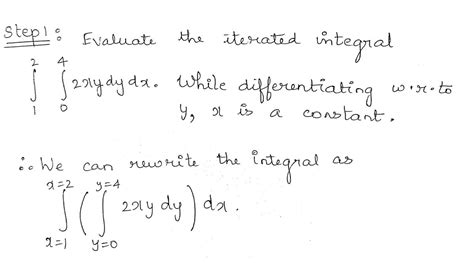 Step 1 : Evaluate the iterated integral
2 4
∫ ∫ 2xy dy dx. While differentiating w.r.to
1 0
y, x is a constant.
∴ We can rewrite the integral as
x=2 y=4
∫ ( ∫ 2xy dy ) dx.
x=1 y=0